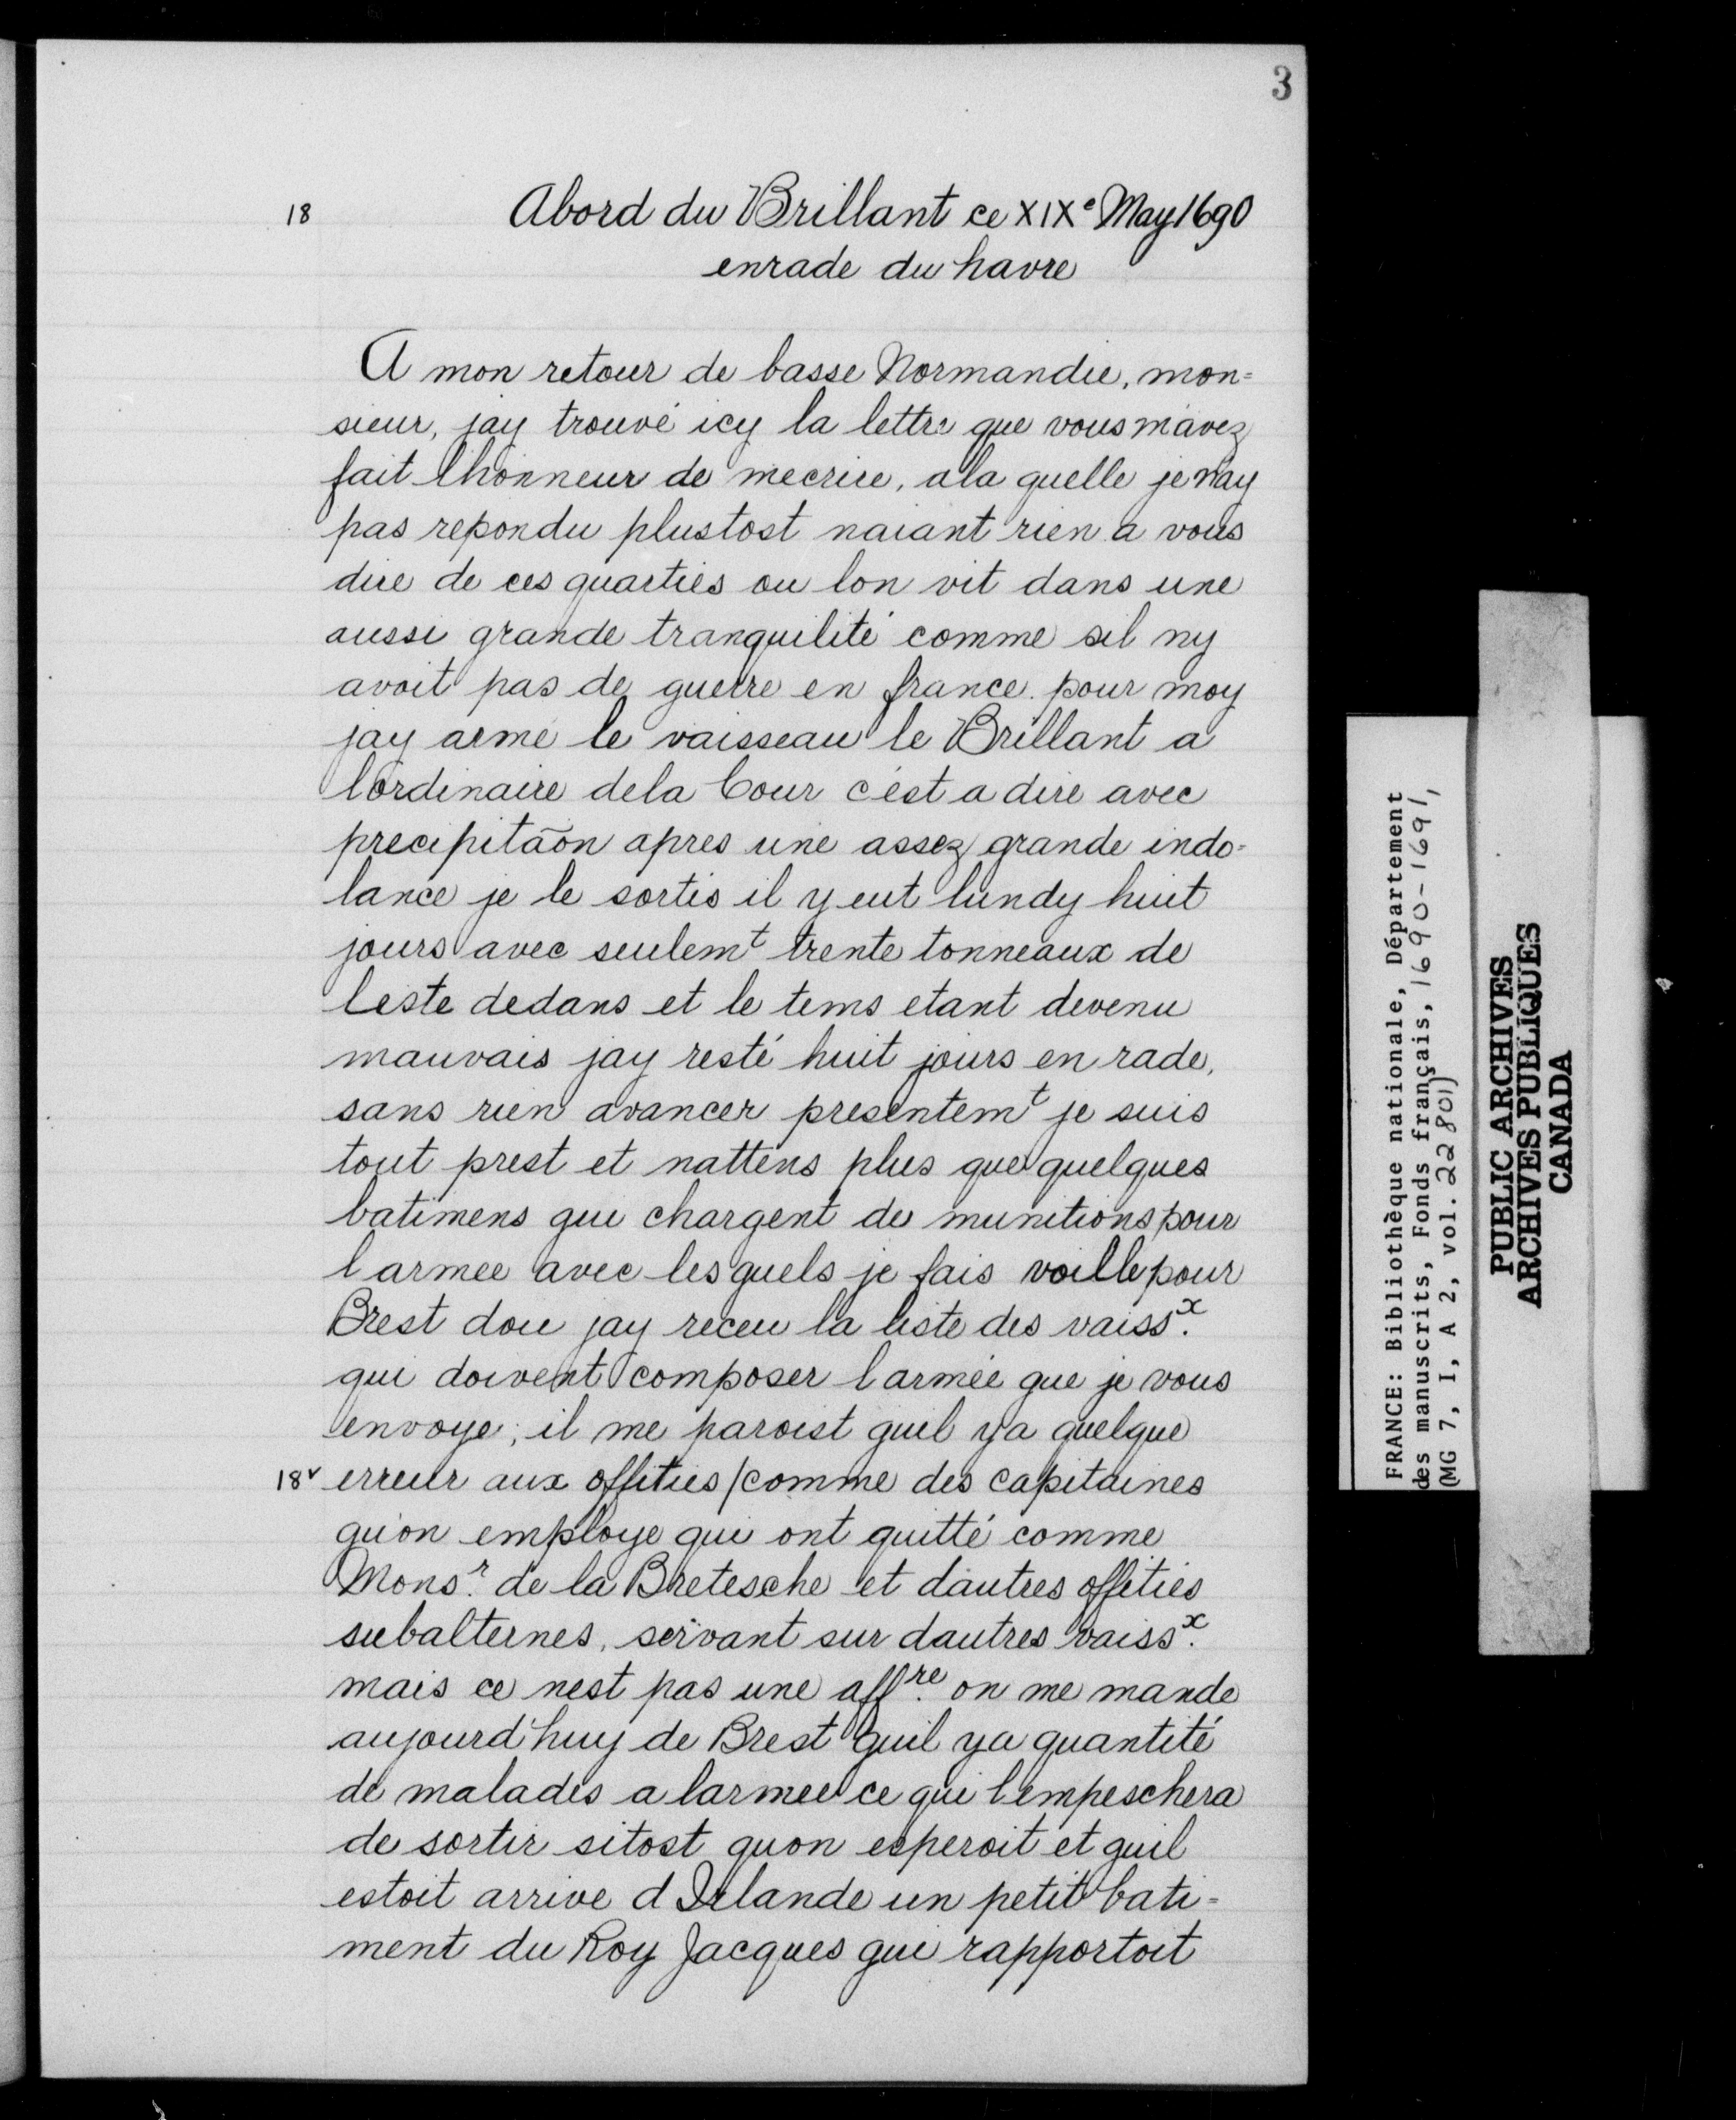 3
18 Abord du Brillant ce XIXe May 1690
enrade du havre
A mon retour de basse Normandie, mon=
sieur, jay trouvé icy la lettre que vous m'avez
fait lhonneur de m'ecrire, ala quelle je n'ay
pas repondu plustost naiant rien a vous
dire de ces quartiés ou lon vit dans une
aussi grande tranquilité comme sil ny
avoit pas de guerre en france. pour moy
jay armé le vaisseau le Brillant a
l'ordinaire dela Cour c'est a dire avec
precipitãon apres une assez grande indo=
lance je le sortis il y eut lundy huit
jours avec seulemt trente tonneaux de
leste dedans et le tems etant devenu
mauvais jay resté huit jours en rade,
sans rien avancer presentemt je suis
tout prest et nattens plus que quelques
batimens qui chargent des munitions pour
l armee avec les quels je fais voille pour
Brest dou jay receu la liste des vaissx.
qui doivent composer l armée que je vous
envoye; il me paroist quil ya quelque
18v erreur aux offitiés / comme des capitaines
qu'on employe qui ont quitté comme
Monsr. de la Bretesche et dautres offitiés
subalternes, servant sur dautres vaissx.
mais ce nest pas une affre. on me mande
aujourd'huy de Brest quil ya quantité
de malades a larmee ce qui l'empeschera
de sortir sitost quon esperoit et quil
estoit arrive d Irlande un petit bati=
ment du Roy Jacques qui rapportoit
FRANCE: Bibliothèque nationale, Département
des manuscrits, Fonds français, 1690-1691,
(MG 7, I, A 2, vol. 22801)
PUBLIC ARCHIVES
ARCHIVES PUBLIQUES
CANADA